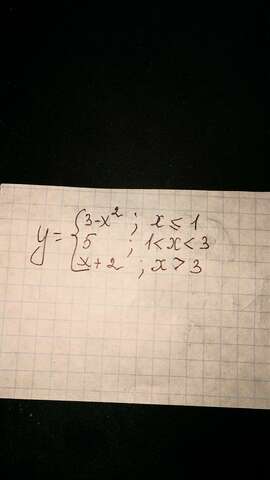 y = { 3-x² ; x ≤ 1
5 ; 1 < x < 3
x + 2 ; x > 3